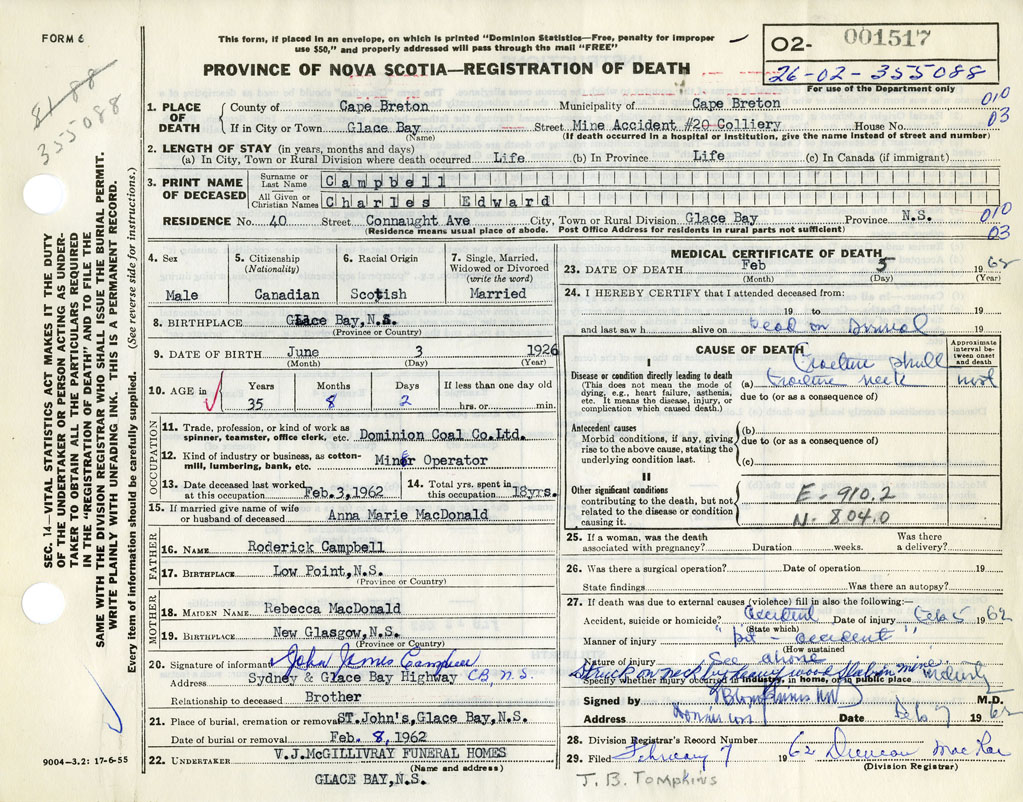 FORM 6
This form, if placed in an envelope, on which is printed "Dominion Statistics—Free, penalty for improper
use $50," and properly addressed will pass through the mail "FREE"
PROVINCE OF NOVA SCOTIA—REGISTRATION OF DEATH
O2- 001517
26-02-355088
For use of the Department only
8188
355088
1. PLACE OF DEATH County of Cape Breton Municipality of Cape Breton 010
If in City or Town Glace Bay Street Mine Accident #20 Colliery House No. 03
(Name) (If death occurred in a hospital or institution, give the name instead of street and number)
2. LENGTH OF STAY (in years, months and days)
(a) In City, Town or Rural Division where death occurred Life (b) In Province Life (c) In Canada (if immigrant)
3. PRINT NAME OF DECEASED Surname or Last Name Campbell
All Given or Christian Names Charles Edward
RESIDENCE No. 40 Street Connaught Ave City, Town or Rural Division Glace Bay Province N.S. 010
(Residence means usual place of abode. Post Office Address for residents in rural parts not sufficient) 03
4. Sex Male
5. Citizenship (Nationality) Canadian
6. Racial Origin Scotish
7. Single, Married, Widowed or Divorced (write the word) Married
8. BIRTHPLACE Glace Bay, N.S.
(Province or Country)
9. DATE OF BIRTH June 3 1926
(Month) (Day) (Year)
10. AGE in Years 35 Months 8 Days 2 If less than one day old hrs. or min.
OCCUPATION
11. Trade, profession, or kind of work as spinner, teamster, office clerk, etc. Dominion Coal Co.Ltd.
12. Kind of industry or business, as cotton-mill, lumbering, bank, etc. Miner Operator
13. Date deceased last worked at this occupation Feb.3,1962 14. Total yrs. spent in this occupation 18yrs.
15. If married give name of wife or husband of deceased Anna Marie MacDonald
FATHER
16. NAME Roderick Campbell
17. BIRTHPLACE Low Point,N.S.
(Province or Country)
MOTHER
18. MAIDEN NAME Rebecca MacDonald
19. BIRTHPLACE New Glasgow,N.S.
(Province or Country)
20. Signature of informant John James Campbell
Address Sydney & Glace Bay Highway CB, N.S.
Relationship to deceased Brother
21. Place of burial, cremation or removal ST.John's,Glace Bay,N.S.
Date of burial or removal Feb. 8, 1962
22. UNDERTAKER V.J.McGILLIVRAY FUNERAL HOMES
(Name and address)
GLACE BAY,N.S.
MEDICAL CERTIFICATE OF DEATH
23. DATE OF DEATH Feb 5 1962
(Month) (Day) (Year)
24. I HEREBY CERTIFY that I attended deceased from:
19 to 19
and last saw h alive on Dead on Arrival 19
CAUSE OF DEATH
Approximate interval between onset and death
I
Disease or condition directly leading to death
(This does not mean the mode of dying, e.g., heart failure, asthenia, etc. It means the disease, injury, or complication which caused death.)
Fracture skull
(a) fracture neck inst
due to (or as a consequence of)
Antecedent causes
Morbid conditions, if any, giving rise to the above cause, stating the underlying condition last.
(b)
due to (or as a consequence of)
(c)
II
Other significant conditions
contributing to the death, but not related to the disease or condition causing it.
E-910.2
N-804.0
25. If a woman, was the death associated with pregnancy? Duration weeks. Was there a delivery?
26. Was there a surgical operation? Date of operation 19
State findings Was there an autopsy?
27. If death was due to external causes (violence) fill in also the following:—
Accident, suicide or homicide? Accident Date of injury Feb 5 1962
(State which)
Manner of injury "pit - accident"
(How sustained)
Nature of injury See above
Struck on neck by wood in mine
Specify whether injury occurred in industry, in home, or in public place industry
Signed by M.D.
Address Date Feb 7 1962
28. Division Registrar's Record Number
29. Filed February 7 1962 Duncan MacRae
(Division Registrar)
J. B. TOMPKINS
SEC. 14—VITAL STATISTICS ACT MAKES IT THE DUTY
OF THE UNDERTAKER OR PERSON ACTING AS UNDER-
TAKER TO OBTAIN ALL THE PARTICULARS REQUIRED
IN THE "REGISTRATION OF DEATH" AND TO FILE THE
SAME WITH THE DIVISION REGISTRAR WHO SHALL ISSUE THE BURIAL PERMIT.
WRITE PLAINLY WITH UNFADING INK. THIS IS A PERMANENT RECORD.
Every item of information should be carefully supplied. (See reverse side for instructions.)
9004-3.2: 17-6-55